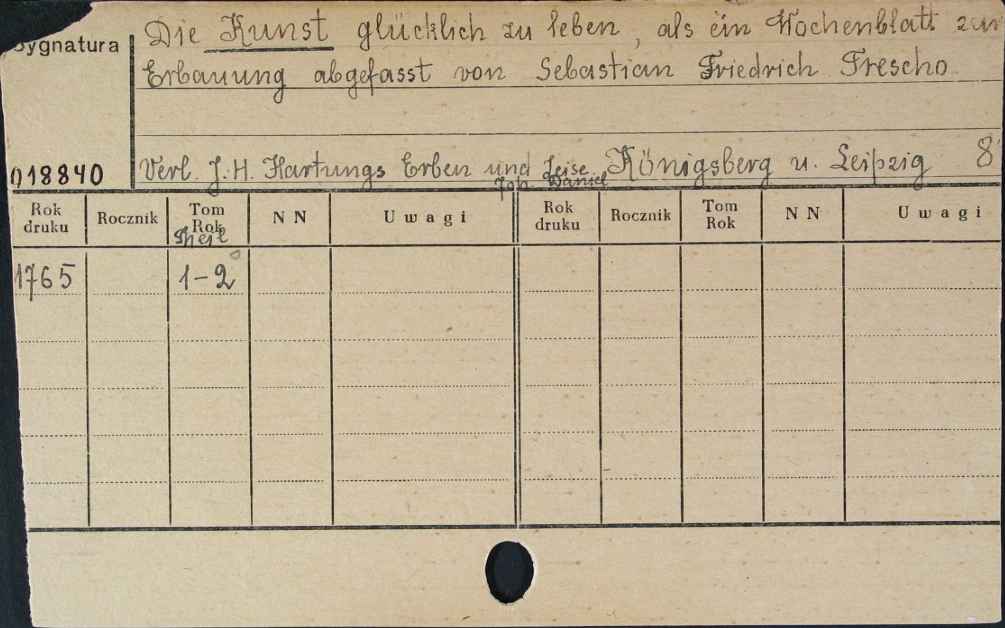 Sygnatura
Die Kunst glücklich zu leben, als ein Wochenblatt zur
Erbauung abgefasst von Sebastian Friedrich Trescho
018840
Verl. J. H. Hartungs Erben und Zeise Königsberg u. Leipzig 8
Joh. Daniel
Rok druku Rocznik Tom Rok N N Uwagi Rok druku Rocznik Tom Rok N N Uwagi
Theil
1765 1-2